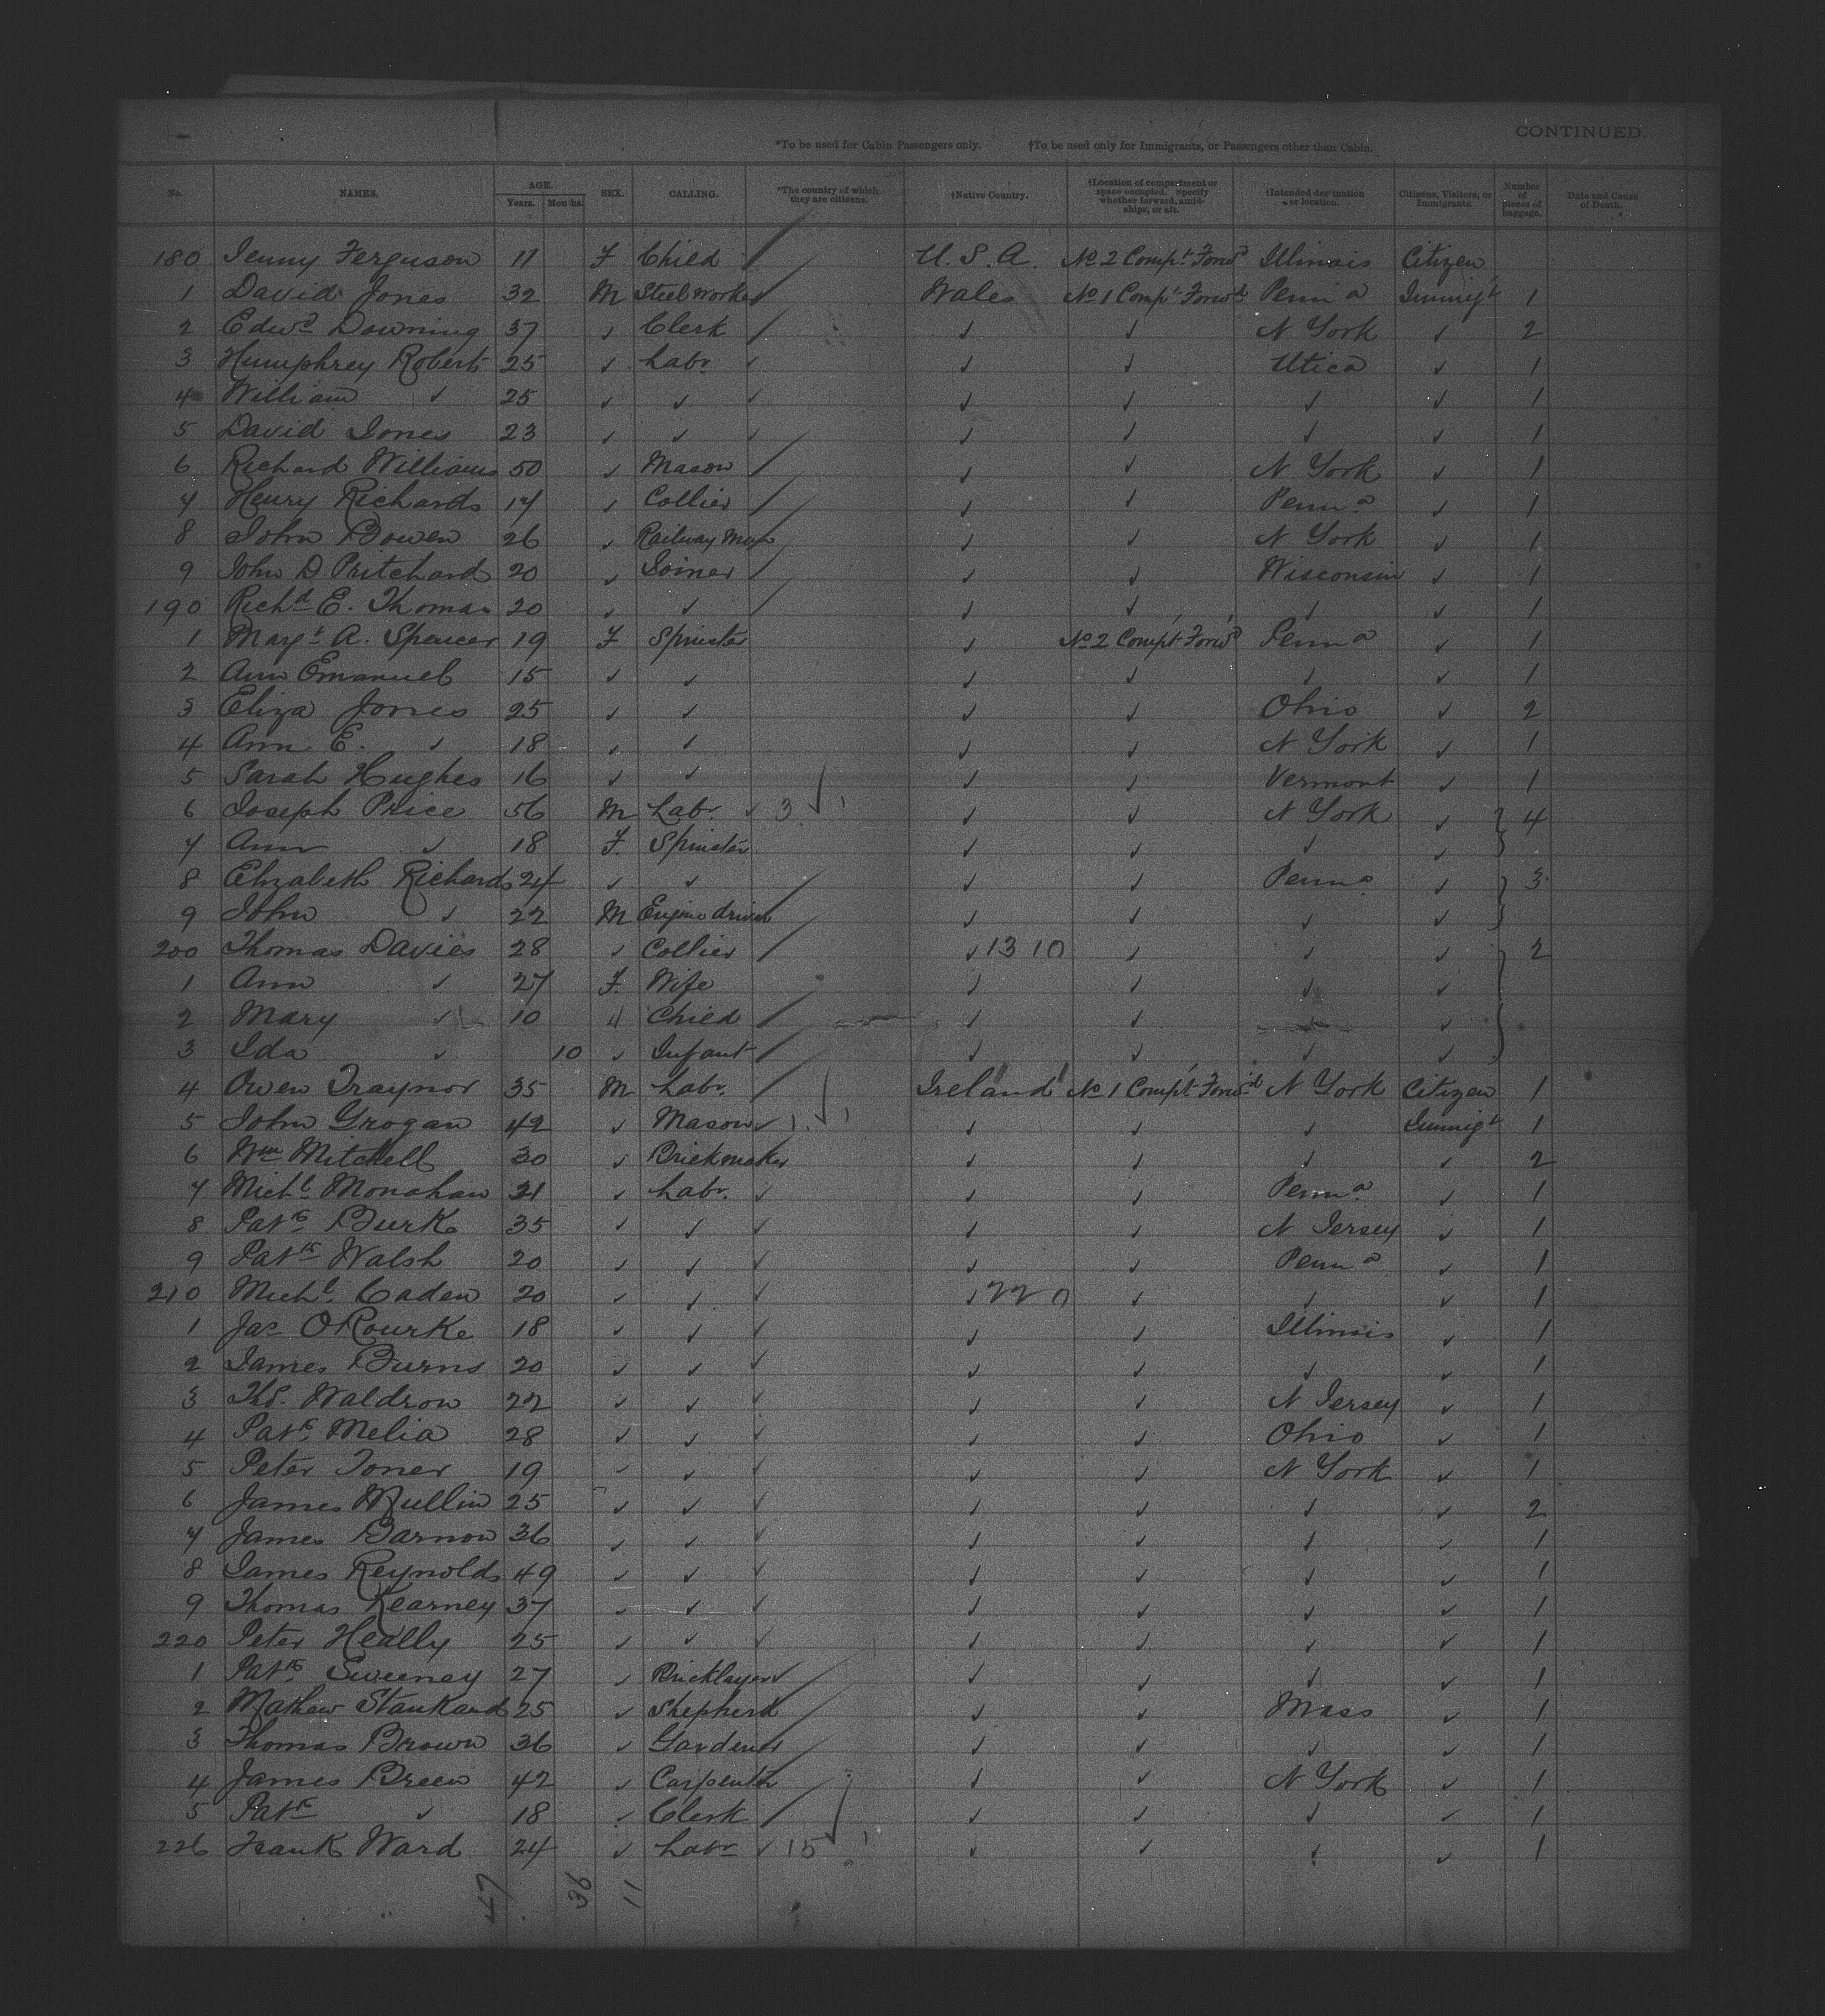 CONTINUED.
*To be used for Cabin Passengers only. †To be used only for Immigrants, or Passengers other than Cabin.
No. NAMES. AGE. Years. Months. SEX. CALLING. *The country of which they are citizens. †Native Country. †Location of compartment or space occupied. Specify whether forward, amidships, or aft. †Intended destination or location. Citizens, Visitors, or Immigrants. Number of pieces of baggage. Date and Cause of Death.
180 Jenny Ferguson 11 F Child U. S. A. No 2 Compt Forwd Illinois Citizen
1 David Jones 32 M Steel Worker Wales No 1 Compt Forwd Penna Immigt 1
2 Edwd Downing 37 ✓ Clerk ✓ ✓ N York ✓ 2
3 Humphrey Robert 25 ✓ Labr ✓ ✓ ✓ Utica ✓ 1
4 William ✓ 25 ✓ ✓ ✓ ✓ ✓ ✓ ✓ 1
5 David Jones 23 ✓ ✓ ✓ ✓ ✓ ✓ ✓ 1
6 Richard Williams 50 ✓ Mason ✓ ✓ N York ✓ 1
7 Henry Richards 17 ✓ Collier ✓ ✓ Penna ✓ 1
8 John Bowen 26 ✓ Railway Man ✓ ✓ N York ✓ 1
9 John D Pritchard 20 ✓ Joiner ✓ ✓ Wisconsin ✓ 1
190 Richd E. Thomas 20 ✓ ✓ ✓ ✓ ✓ ✓ 1
1 Margt A. Spencer 19 F Spinster ✓ No 2 Compt Forwd Penna ✓ 1
2 Ann Emanuel 15 ✓ ✓ ✓ ✓ ✓ ✓ 1
3 Eliza Jones 25 ✓ ✓ ✓ ✓ Ohio ✓ 2
4 Ann E. ✓ 18 ✓ ✓ ✓ ✓ N York ✓ 1
5 Sarah Hughes 16 ✓ ✓ ✓ ✓ Vermont ✓ 1
6 Joseph Price 56 M Labr ✓ 3 ✓ ✓ N York ✓ 4
7 Ann ✓ 18 F. Spinster ✓ ✓ ✓ ✓
8 Elizabeth Richards 24 ✓ ✓ ✓ ✓ Penna ✓ 3
9 John ✓ 22 M Engine driver ✓ ✓ ✓ ✓
200 Thomas Davies 28 ✓ Collier ✓ 13 10 ✓ ✓ ✓ 2
1 Ann ✓ 27 F. Wife ✓ ✓ ✓ ✓
2 Mary ✓ 10 " Child ✓ ✓ ✓ ✓
3 Ida ✓ 10 ✓ Infant ✓ ✓ ✓ ✓
4 Owen Traynor 35 M Labr. Ireland No 1 Compt Forwd N York Citizen 1
5 John Grogan 42 ✓ Mason ✓ 1 ✓ ✓ ✓ Immigt 1
6 Wm Mitchell 30 ✓ Brickmaker ✓ ✓ ✓ ✓ 2
7 Michl Monahan 31 ✓ Labr. ✓ ✓ ✓ Penna ✓ 1
8 Patk Burke 35 ✓ ✓ ✓ ✓ ✓ N Jersey ✓ 1
9 Patk Walsh 20 ✓ ✓ ✓ ✓ ✓ Penna ✓ 1
210 Michl Caden 20 ✓ ✓ ✓ ✓ 22 0 ✓ ✓ ✓ 1
1 Jas O'Rourke 18 ✓ ✓ ✓ ✓ ✓ Illinois ✓ 1
2 James Burns 20 ✓ ✓ ✓ ✓ ✓ ✓ ✓ 1
3 Thos. Waldron 22 ✓ ✓ ✓ ✓ ✓ N Jersey ✓ 1
4 Patk Melia 28 ✓ ✓ ✓ ✓ ✓ Ohio ✓ 1
5 Peter Toner 19 ✓ ✓ ✓ ✓ ✓ N York ✓ 1
6 James Mullin 25 ✓ ✓ ✓ ✓ ✓ ✓ ✓ 2
7 James Barnon 36 ✓ ✓ ✓ ✓ ✓ ✓ ✓ 1
8 James Reynolds 49 ✓ ✓ ✓ ✓ ✓ ✓ ✓ 1
9 Thomas Kearney 37 ✓ ✓ ✓ ✓ ✓ ✓ ✓ 1
220 Peter Heally 25 ✓ ✓ ✓ ✓ ✓ ✓ ✓ 1
1 Patk Sweeney 27 ✓ Bricklayer ✓ ✓ ✓ ✓ 1
2 Mathew Stankard 25 ✓ Shepherd ✓ ✓ Mass ✓ 1
3 Thomas Brown 36 ✓ Gardener ✓ ✓ ✓ ✓ 1
4 James Breen 42 ✓ Carpenter ✓ ✓ N York ✓ 1
5 Patk ✓ 18 ✓ Clerk ✓ ✓ ✓ ✓ 1
226 Frank Ward 24 ✓ Labr ✓ 15 ✓ ✓ ✓ ✓ 1
47 36 11